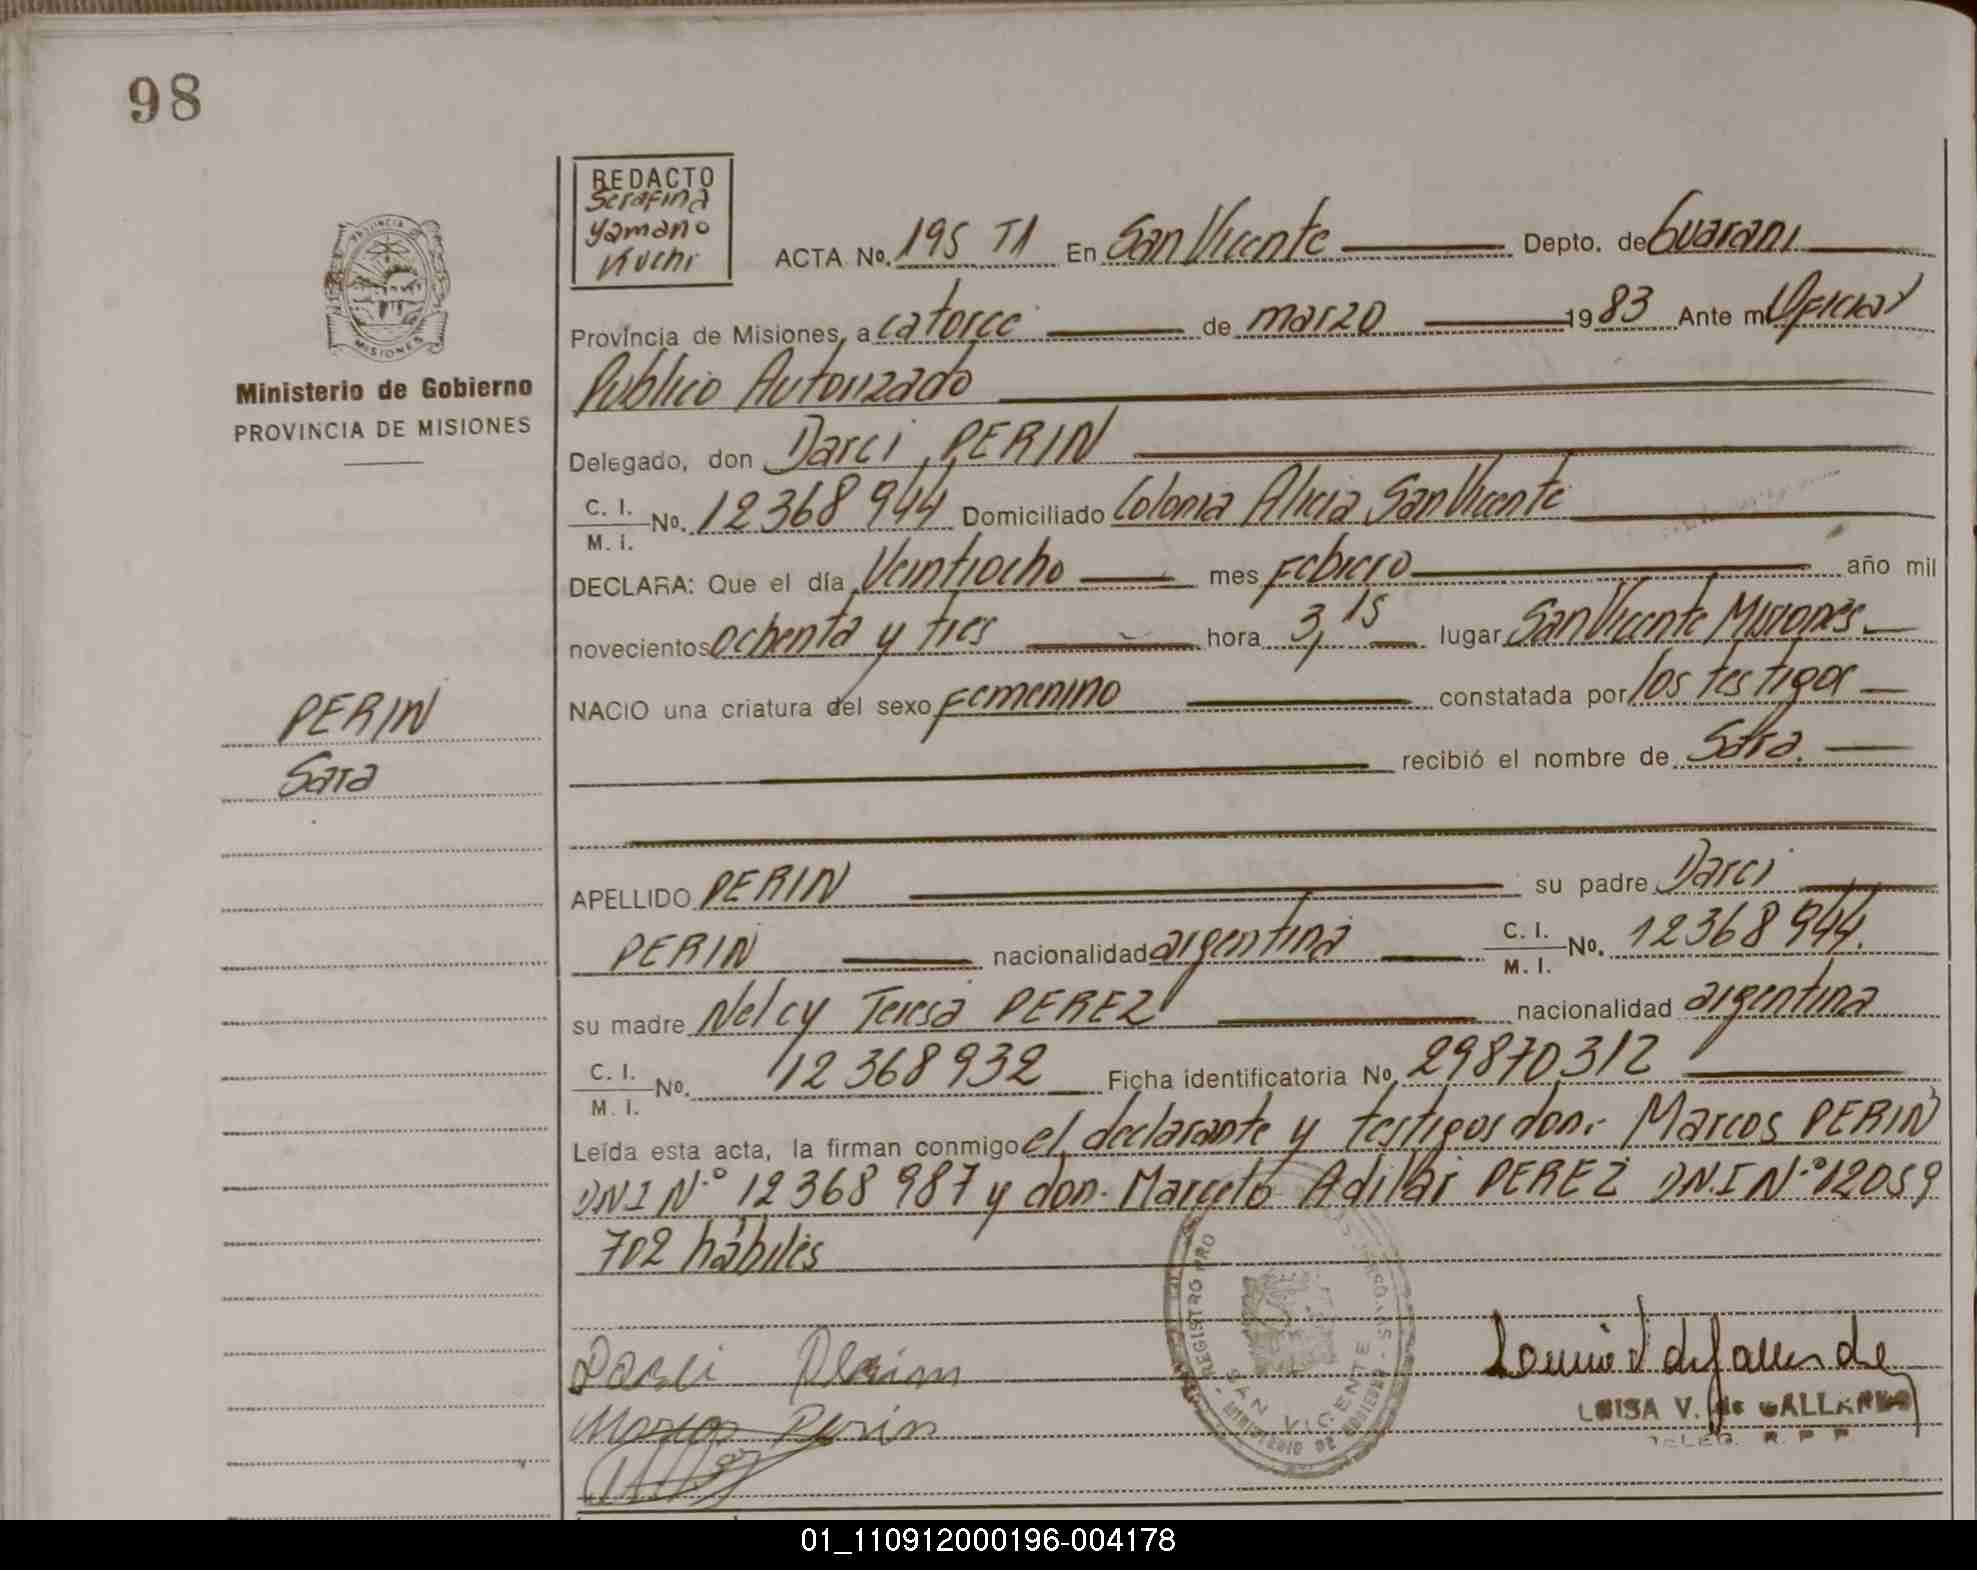 98
REDACTO
Serafina
Yamano
Kuchi
PROVINCIA DE
MISIONES
Ministerio de Gobierno
PROVINCIA DE MISIONES
PERIN
Sara
ACTA No. 195 T1 En San Vicente Depto. de Guarani
Provincia de Misiones, a catorce de marzo 1983 Ante mi Oficial
Publico Autorizado
Delegado, don Darci PERIN
C. I. / M. I. No. 12368944 Domiciliado Colonia Alicia San Vicente
DECLARA: Que el día Veintiocho mes febrero año mil
novecientos ochenta y tres hora 3,15 lugar San Vicente Misiones
NACIO una criatura del sexo femenino constatada por los testigos
recibió el nombre de Sara.
APELLIDO PERIN su padre Darci
PERIN nacionalidad argentina C. I. / M. I. No. 12368944.
su madre Nelcy Teresa PEREZ nacionalidad argentina
C. I. / M. I. No. 12368932 Ficha identificatoria No. 29870312
Leída esta acta, la firman conmigo el declarante y testigos don.- Marcos PERIN
DNI N.° 12368987 y don. Marcelo Adilar PEREZ DNI N.° 12059
702 hábiles
REGISTRO PRO
SAN VICENTE
MINISTERIO DE GOBIERNO
Darci Perin
Marcos Perin
LUISA V. de GALLARDO
DELEG. R. P. P.
01_110912000196-004178